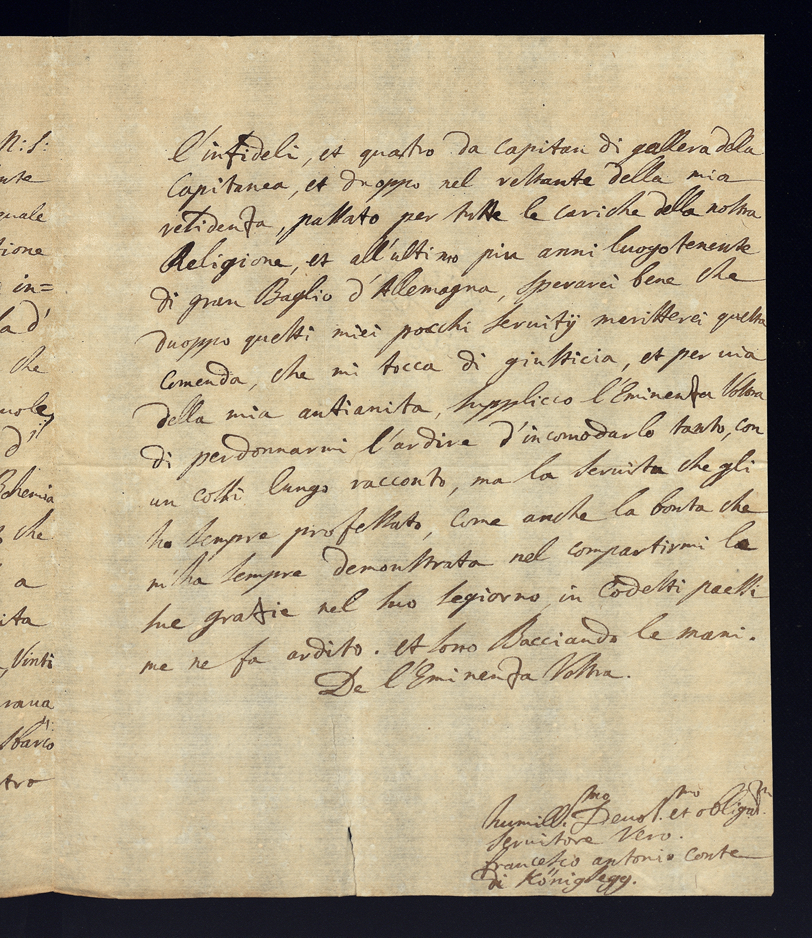 N: S:
nte
quale
tione
in=
la d'
che
uole,
d'
Bohemia
che
a
ita
Vinti
raua
Sbarco
tro
l'infideli, et quatro da Capitan di gallera della
Capitanea, et duoppo nel restante della mia
residenza, passato per tutte le cariche della nostra
Religione, et all'ultimo piu anni luogotenente
di gran Baglio d'Allemagna, sperarei bene che
duoppo questi miei pocchi seruitÿ meritterei questa
Comenda, che mi tocca di giustitia, et per uia
della mia antianita, supplicco l'Eminenza Vostra
di perdonnarmi l'ardire d'incomodarlo tanto, con
un cossi lungo racconto, ma la seruitu che gli
ho sempre professato, come anche la bonta che
m'ha sempre demonstrata nel compartirmi le
sue grazie nel suo segiorno, in Codesti paessi
me ne fa ardito. et sono Bacciando le mani.
De l'Eminenza Vostra.
humill:mo Deuot:mo et obligat:mo
Seruitore Vero.
francesco antonio Conte
di Königsegg.